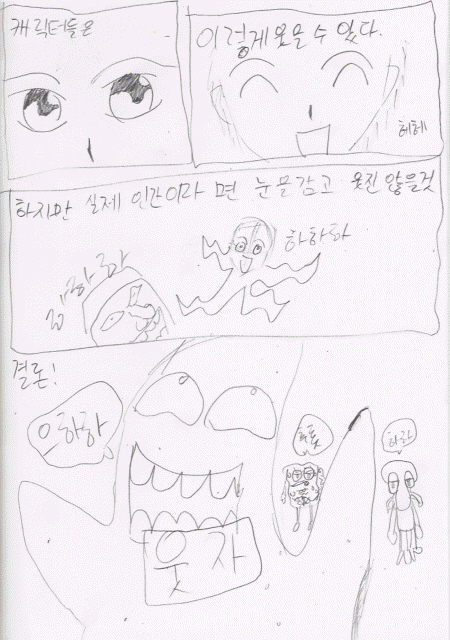 캐릭터들은
이렇게 웃을 수 있다.
헤헤
하지만 실제 인간이라면 눈을 감고 웃진 않을것
하하하
결론!
으하핰
웃자